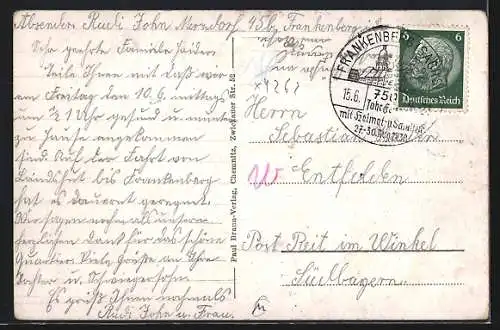 Absender Rudi John Merzdorf 15b, Frankenberg
Sehr geehrte Familie Haider
Teile Ihnen mit daß wir
am Freitag den 10.6. mittags
um ½1 Uhr gesund u. munter
zu Hause angekommen
sind. Auf der Fahrt von
Landshut bis Frankenberg
hat es dauernd geregnet.
Wir sagen nochmals unsern
herzlichen Dank für das schöne
Quartier. Viele Grüße an Ihre
Tochter u. Schwiegersohn.
Es grüßt Ihnen nochmals
Rudi John u. Frau.
Paul Braun-Verlag, Chemnitz, Zwickauer Str. 52
FRANKENBERG
15.6.
mit Heimat- u.
6 6
Deutsches Reich
Herrn
Sebastian
Entfelden
Post Reit im Winkel
Südbayern